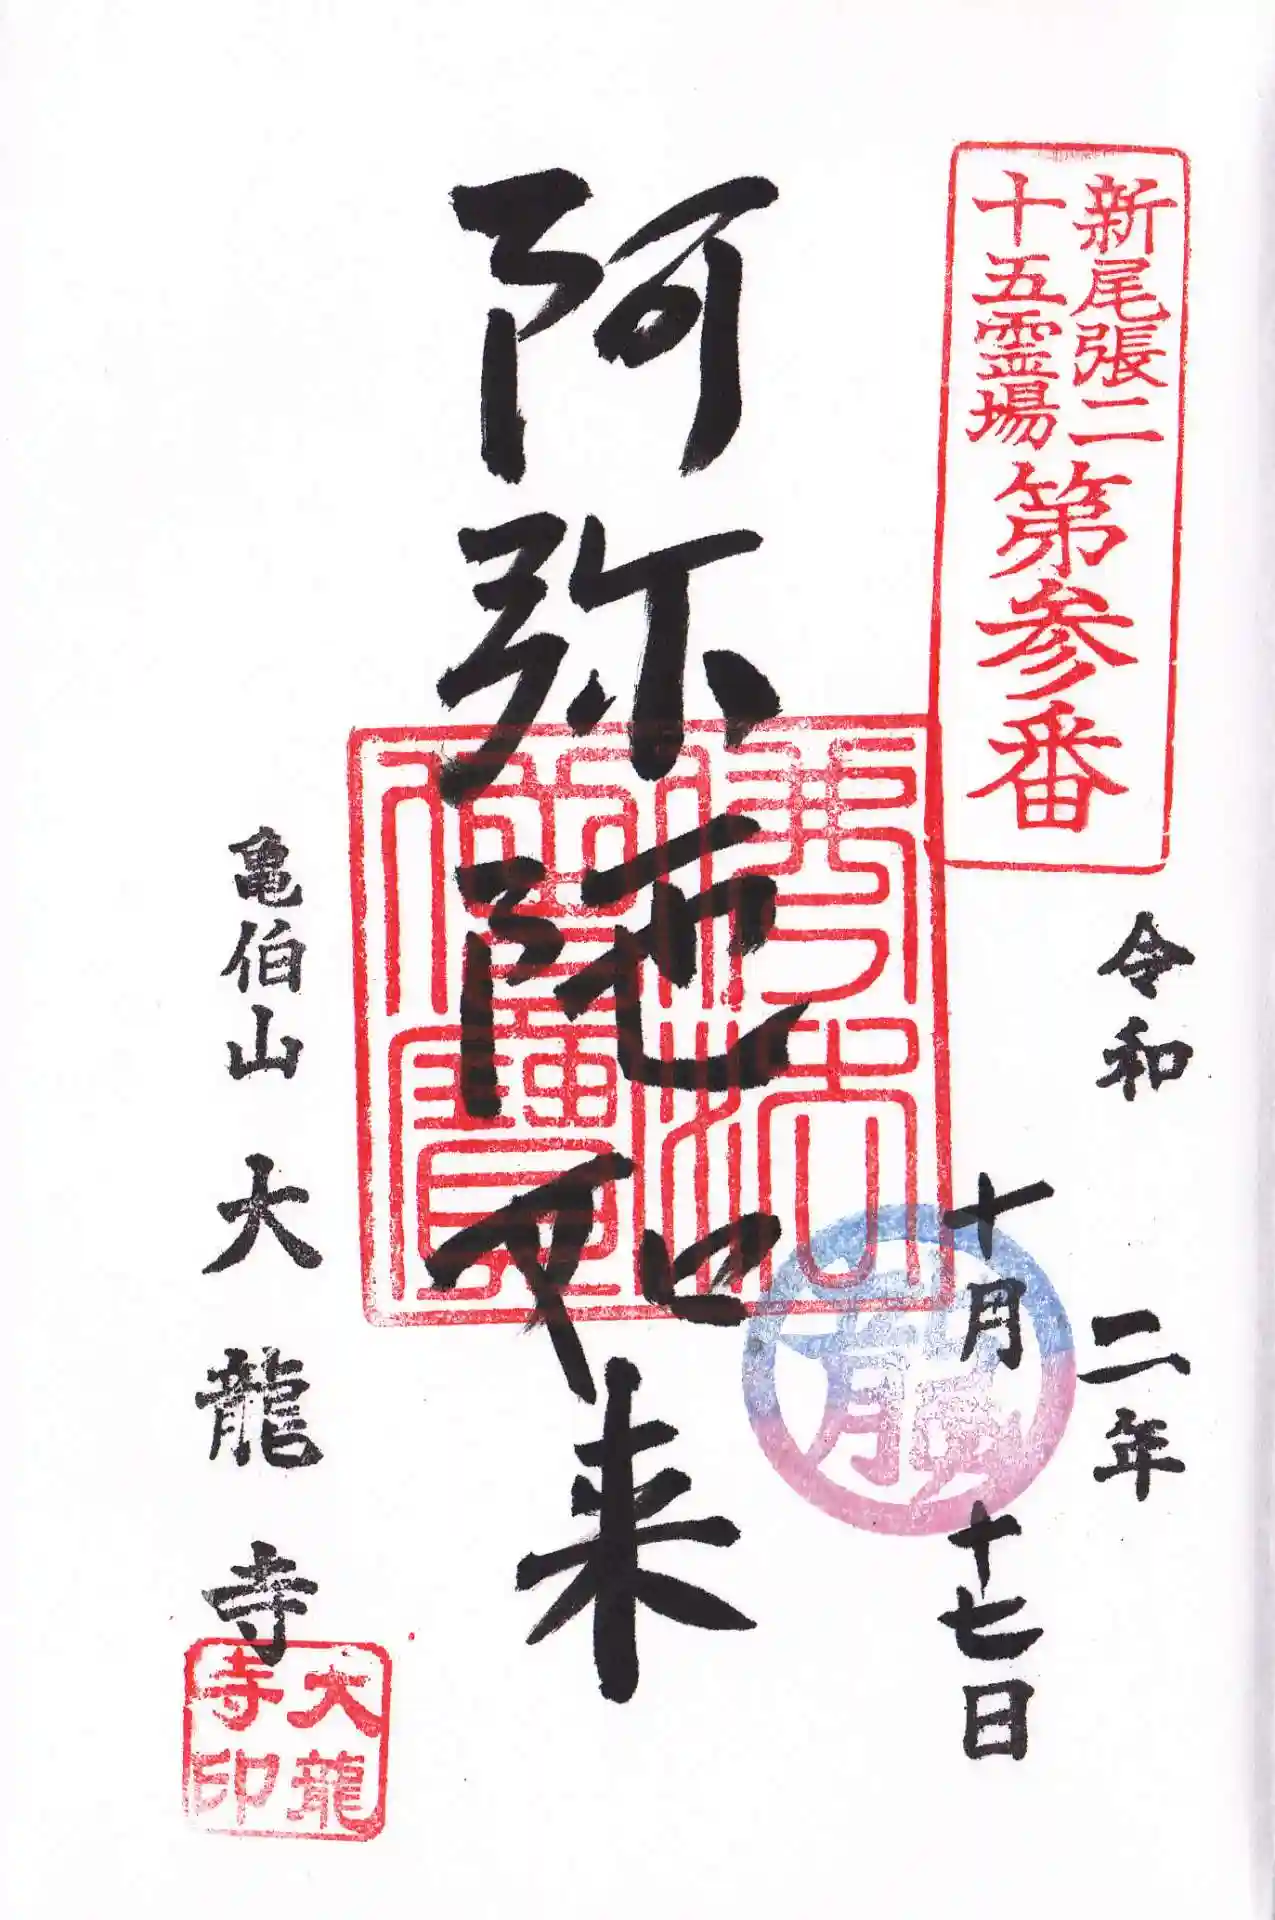 新尾張二
十五霊場
第参番
令和二年
十月十七日
阿弥陀如来
亀伯山大龍寺
大龍
寺印